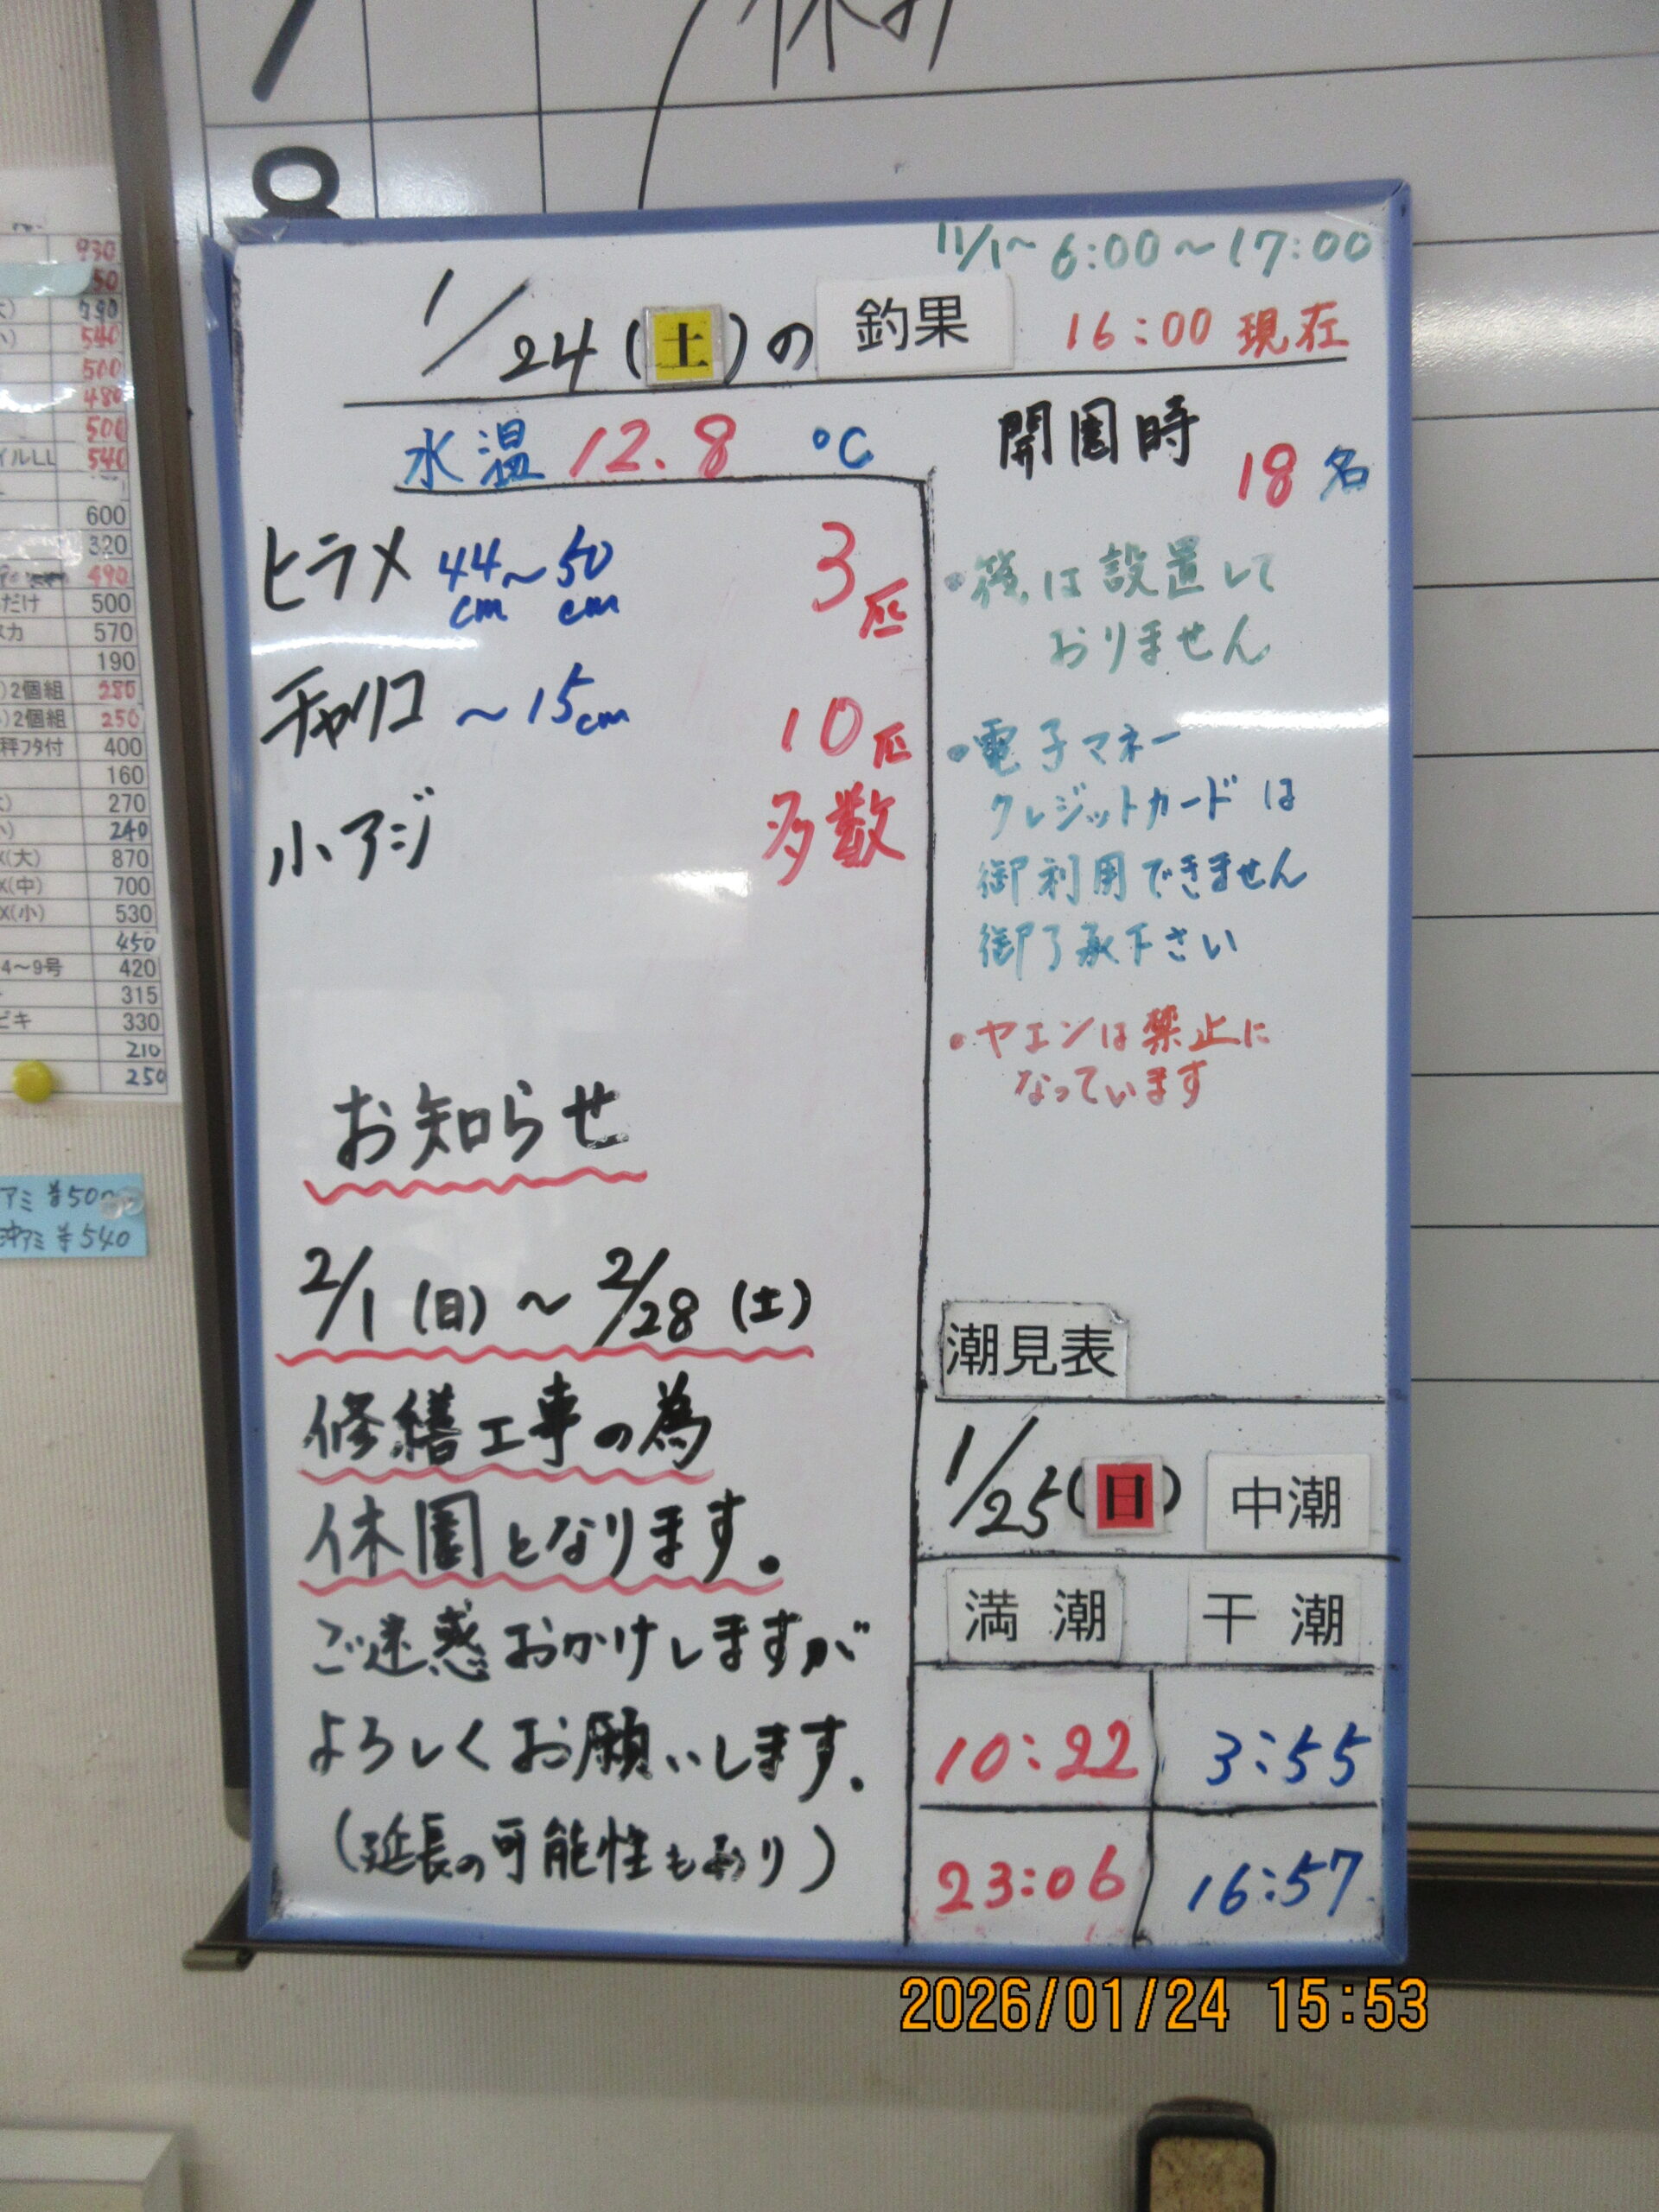 休み
8
11/1〜 6:00〜17:00
1/24(土)の 釣果 16:00 現在
水温 12.8 ℃
開園時
18名
ヒラメ 44cm〜50cm 3匹
チャリコ 〜15cm 10匹
小アジ 多数
・ は設置して
おりません
・電子マネー
クレジットカードは
御利用できません
御了承下さい
・ヤエンは禁止に
なっています
お知らせ
2/1(日)〜2/28(土)
修繕工事の為
休園となります。
ご迷惑おかけしますが
よろしくお願いします。
(延長の可能性もあり)
潮見表
1/25(日) 中潮
満潮 干潮
10:22 3:55
23:06 16:57
930
50
790
540
500
480
500
イルLL 540
600
320
490
だけ 500
570
190
)2個組 280
)2個組 250
秤フタ付 400
160
270
240
X(大) 870
X(中) 700
X(小) 530
450
4〜9号 420
315
ビキ 330
210
250
アミ ¥500
沖アミ ¥540
2026/01/24 15:53